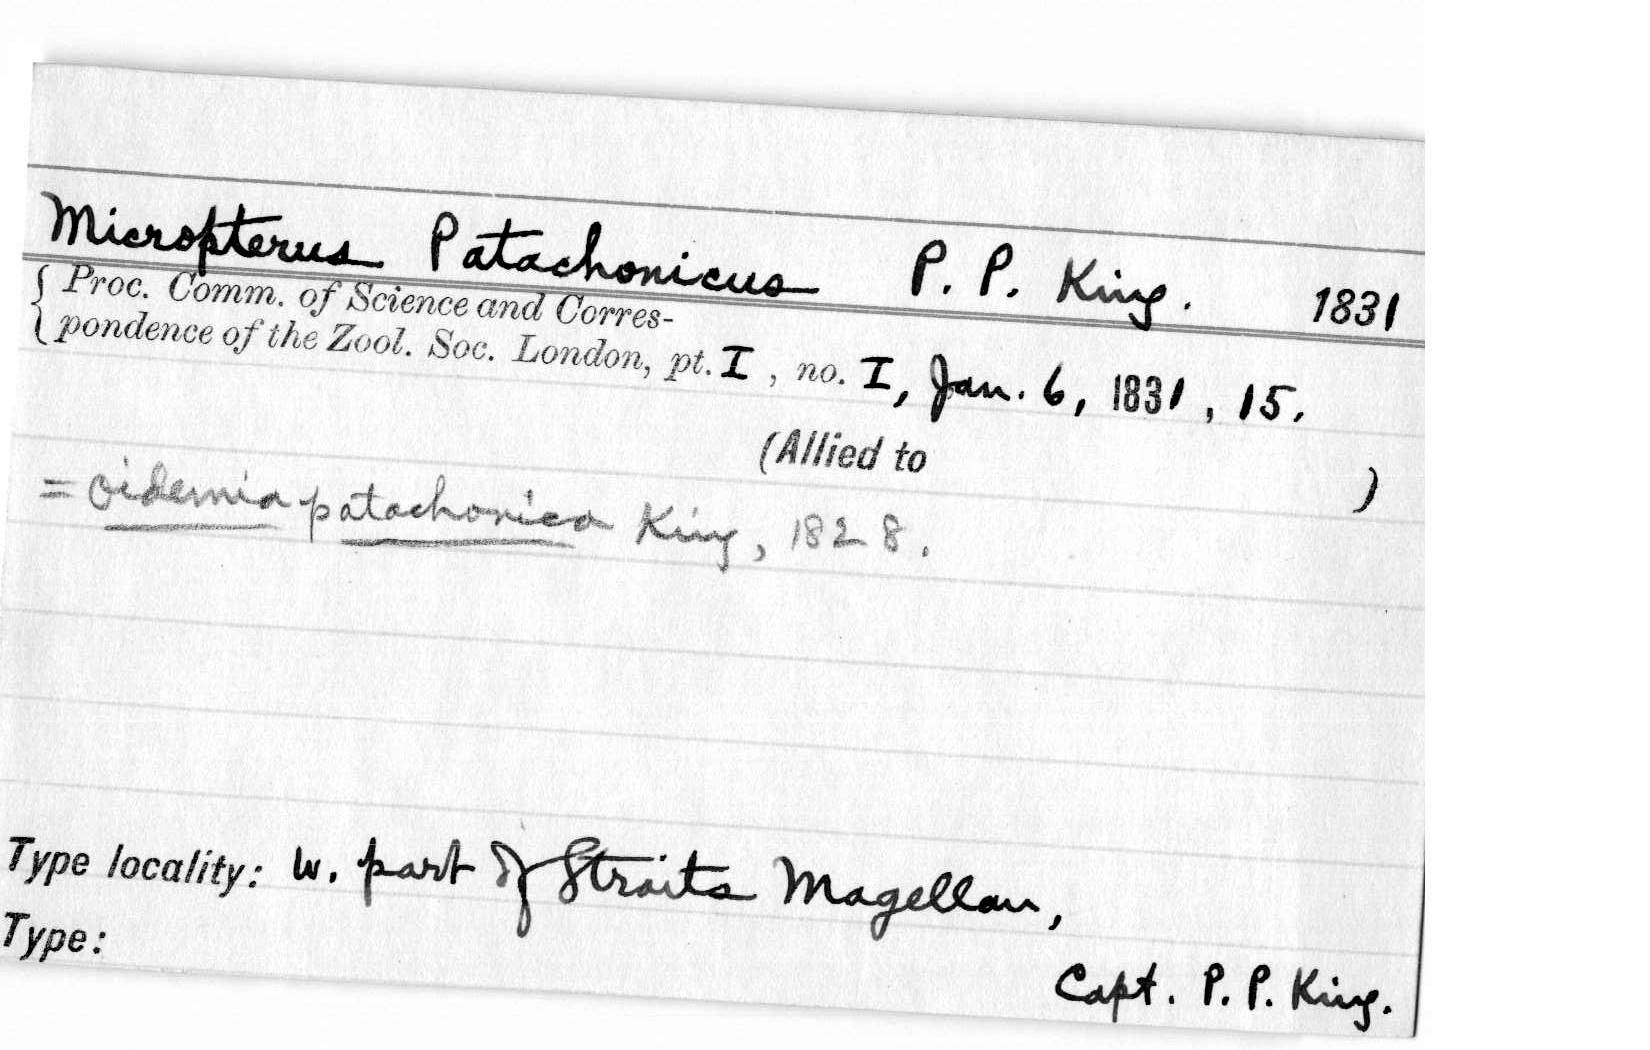 Micropterus Patachonicus P. P. King. 1831
Proc. Comm. of Science and Corres-
pondence of the Zool. Soc. London, pt. I, no. I, Jan. 6, 1831, 15.
(Allied to )
= Oidemia patachonica King, 1828.
Type locality: W. part of Straits Magellan,
Type:
Capt. P. P. King.